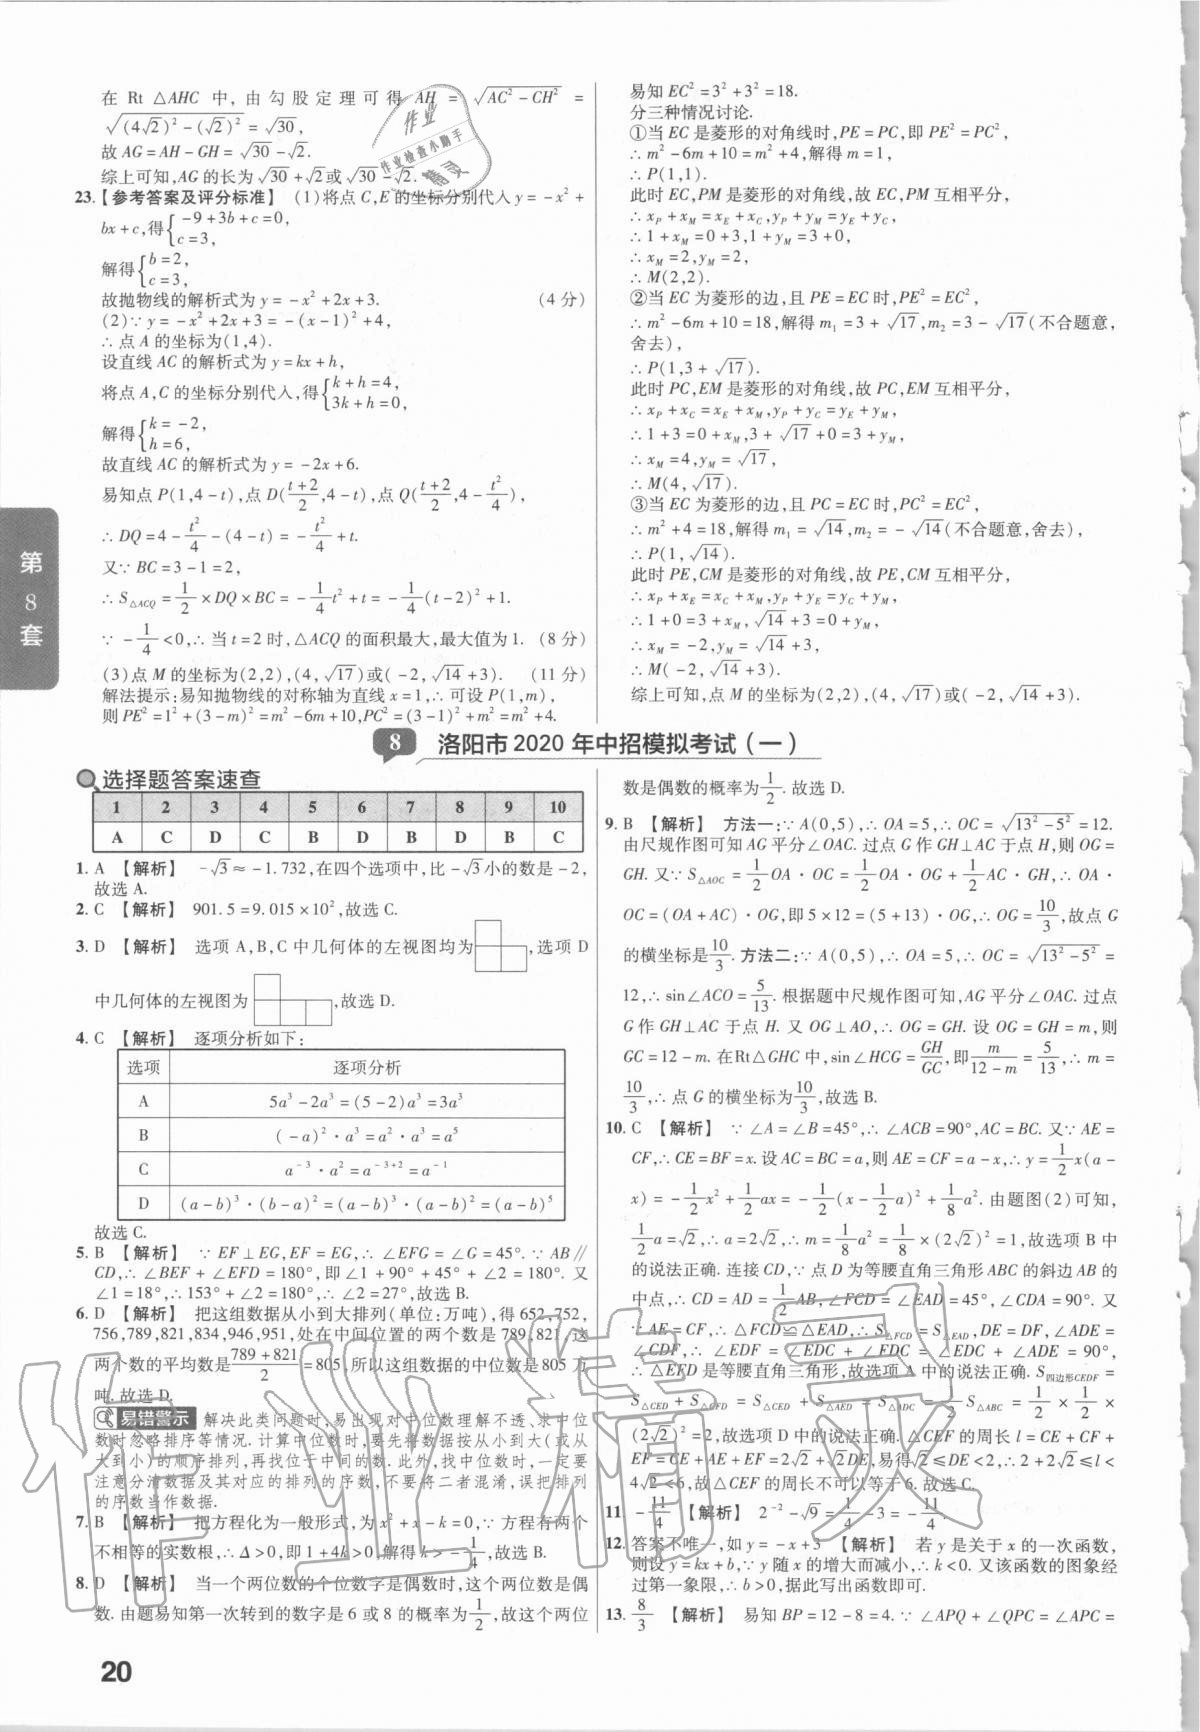 在 Rt △AHC 中,由勾股定理可得 AH = √(AC²-CH²) =
√((4√2)²-(√2)²) = √30,
故 AG=AH-GH=√30-√2.
综上可知,AG 的长为√30+√2或√30-√2.
23.【参考答案及评分标准】 (1)将点 C,E 的坐标分别代入 y=-x²+
bx+c,得{-9+3b+c=0, c=3,
解得{b=2, c=3,
故抛物线的解析式为 y=-x²+2x+3. (4 分)
(2)∵y=-x²+2x+3=-(x-1)²+4,
∴点 A 的坐标为(1,4).
设直线 AC 的解析式为 y=kx+h,
将点 A,C 的坐标分别代入,得{k+h=4, 3k+h=0,
解得{k=-2, h=6,
故直线 AC 的解析式为 y=-2x+6.
易知点 P(1,4-t),点 D((t+2)/2,4-t),点 Q((t+2)/2,4-t²/4),
∴DQ=4-t²/4-(4-t)=-t²/4+t.
又∵BC=3-1=2,
∴S△ACQ=1/2×DQ×BC=-1/4t²+t=-1/4(t-2)²+1.
∵-1/4<0,∴当 t=2 时,△ACQ 的面积最大,最大值为 1. (8 分)
(3)点 M 的坐标为(2,2),(4,√17)或(-2,√14+3). (11 分)
解法提示:易知抛物线的对称轴为直线 x=1,∴可设 P(1,m),
则 PE²=1²+(3-m)²=m²-6m+10,PC²=(3-1)²+m²=m²+4.
易知 EC²=3²+3²=18.
分三种情况讨论.
①当 EC 是菱形的对角线时,PE=PC,即 PE²=PC²,
∴m²-6m+10=m²+4,解得 m=1,
∴P(1,1).
此时 EC,PM 是菱形的对角线,故 EC,PM 互相平分,
∴xP+xM=xE+xC,yP+yM=yE+yC,
∴1+xM=0+3,1+yM=3+0,
∴xM=2,yM=2,
∴M(2,2).
②当 EC 为菱形的边,且 PE=EC 时,PE²=EC²,
∴m²-6m+10=18,解得 m₁=3+√17,m₂=3-√17(不合题意,
舍去),
∴P(1,3+√17).
此时 PC,EM 是菱形的对角线,故 PC,EM 互相平分,
∴xP+xC=xE+xM,yP+yC=yE+yM,
∴1+3=0+xM,3+√17+0=3+yM,
∴xM=4,yM=√17,
∴M(4,√17).
③当 EC 为菱形的边,且 PC=EC 时,PC²=EC²,
∴m²+4=18,解得 m₁=√14,m₂=-√14(不合题意,舍去),
∴P(1,√14).
此时 PE,CM 是菱形的对角线,故 PE,CM 互相平分,
∴xP+xE=xC+xM,yP+yE=yC+yM,
∴1+0=3+xM,√14+3=0+yM,
∴xM=-2,yM=√14+3,
∴M(-2,√14+3).
综上可知,点 M 的坐标为(2,2),(4,√17)或(-2,√14+3).
第8套
8 洛阳市 2020 年中招模拟考试(一)
选择题答案速查
1 2 3 4 5 6 7 8 9 10
A C D C B D B D B C
1. A 【解析】 -√3≈-1.732,在四个选项中,比-√3小的数是-2,
故选 A.
2. C 【解析】 901.5=9.015×10²,故选 C.
3. D 【解析】 选项 A,B,C 中几何体的左视图均为 ,选项 D
中几何体的左视图为 ,故选 D.
4. C 【解析】 逐项分析如下:
选项 逐项分析
A 5a³-2a³=(5-2)a³=3a³
B (-a)²·a³=a²·a³=a⁵
C a⁻³·a²=a⁻³⁺²=a⁻¹
D (a-b)³·(b-a)²=(a-b)³·(a-b)²=(a-b)⁵
故选 C.
5. B 【解析】 ∵EF⊥EG,EF=EG,∴∠EFG=∠G=45°.∵AB∥
CD,∴∠BEF+∠EFD=180°,即∠1+90°+45°+∠2=180°. 又
∠1=18°,∴153°+∠2=180°,∴∠2=27°,故选 B.
6. D 【解析】 把这组数据从小到大排列(单位:万吨),得 652,752,
756,789,821,834,946,951,处在中间位置的两个数是 789,821,这
两个数的平均数是(789+821)/2=805,所以这组数据的中位数是 805 万
吨.故选 D.
易错警示 解决此类问题时,易出现对中位数理解不透、求中位
数时忽略排序等情况.计算中位数时,要先将数据按从小到大(或从
大到小)的顺序排列,再找位于中间的数.此外,找中位数时,一定要
注意分清数据及其对应的排列的序数,不要将二者混淆,误把排列
的序数当作数据.
7. B 【解析】 把方程化为一般形式,为 x²+x-k=0,∵方程有两个
不相等的实数根,∴Δ>0,即 1+4k>0,解得 k>-1/4,故选 B.
8. D 【解析】 当一个两位数的个位数字是偶数时,这个两位数是偶
数.由题易知第一次转到的数字是 6 或 8 的概率为1/2,故这个两位
数是偶数的概率为1/2.故选 D.
9. B 【解析】 方法一:∵A(0,5),∴OA=5,∴OC=√(13²-5²)=12.
由尺规作图可知 AG 平分∠OAC. 过点 G 作 GH⊥AC 于点 H,则 OG=
GH. 又∵S△AOC=1/2OA·OC=1/2OA·OG+1/2AC·GH,∴OA·
OC=(OA+AC)·OG,即 5×12=(5+13)·OG,∴OG=10/3,故点 G
的横坐标是10/3. 方法二:∵A(0,5),∴OA=5,∴OC=√(13²-5²)=
12,∴sin∠ACO=5/13. 根据题中尺规作图可知,AG 平分∠OAC. 过点
G 作 GH⊥AC 于点 H. 又 OG⊥AO,∴OG=GH. 设 OG=GH=m,则
GC=12-m. 在Rt△GHC 中,sin∠HCG=GH/GC,即m/(12-m)=5/13,∴m=
10/3,∴点 G 的横坐标为10/3,故选 B.
10. C 【解析】 ∵∠A=∠B=45°,∴∠ACB=90°,AC=BC. 又∵AE=
CF,∴CE=BF=x. 设 AC=BC=a,则 AE=CF=a-x,∴y=1/2x(a-
x)=-1/2x²+1/2ax=-1/2(x-1/2a)²+1/8a². 由题图(2)可知,
1/2a=√2,∴a=2√2,∴m=1/8a²=1/8×(2√2)²=1,故选项 B 中
的说法正确. 连接 CD,∵点 D 为等腰直角三角形 ABC 的斜边 AB 的
中点,∴CD=AD=1/2AB,∠FCD=∠EAD=45°,∠CDA=90°. 又
∵AE=CF,∴△FCD≌△EAD,∴S△FCD=S△EAD,DE=DF,∠ADE=
∠CDF,∴∠EDF=∠EDC+∠FDC=∠EDC+∠ADE=90°,
∴△EFD 是等腰直角三角形,故选项 A 中的说法正确. S四边形CEDF=
S△CED+S△CFD=S△CED+S△AED=S△ADC=1/2S△ABC=1/2×1/2×
(2√2)²=2,故选项 D 中的说法正确. △CEF 的周长 l=CE+CF+
EF=CE+AE+EF=2√2+√2DE,易得√2≤DE<2,∴2+2√2≤l<
4√2<6,故△CEF 的周长不可以等于 6. 故选 C.
11. -11/4 【解析】 2⁻²-√9=1/4-3=-11/4.
12. 答案不唯一,如 y=-x+3 【解析】 若 y 是关于 x 的一次函数,
则设 y=kx+b,∵y 随 x 的增大而减小,∴k<0. 又该函数的图象经
过第一象限,∴b>0,据此写出函数即可.
13. 8/3 【解析】 易知 BP=12-8=4. ∵∠APQ+∠QPC=∠APC=
20
作业
作业检查小助手
精灵
作业精灵